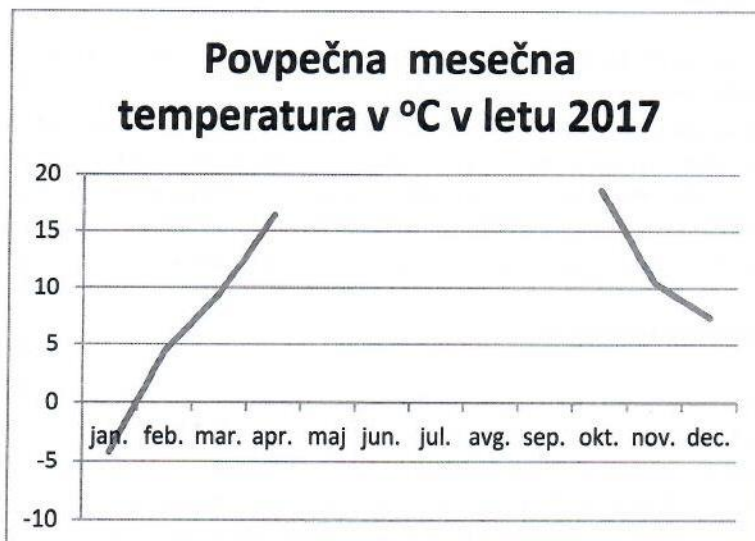 Povpečna mesečna
temperatura v °C v letu 2017
20
15
10
5
0
jan. feb. mar. apr. maj jun. jul. avg. sep. okt. nov. dec.
-5
-10